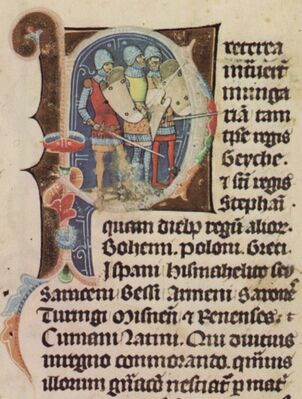 Preterea
intͥuert̄
inunga
riā tam
tp̄e regis
Geyche.
⁊ sc̄i regis
Stephan̄.
quam dieb regū alior.
Bohemi. poloni. Greci
Ispani hismahelite sey
Saraceni Bessi Armeni Saxone
Turingi Misnen̄ ⁊ Renenses.
Cumani latini. Qui diucius
inregno commorando. quāuis
illorum gn̄aco nesciat̄ p mat